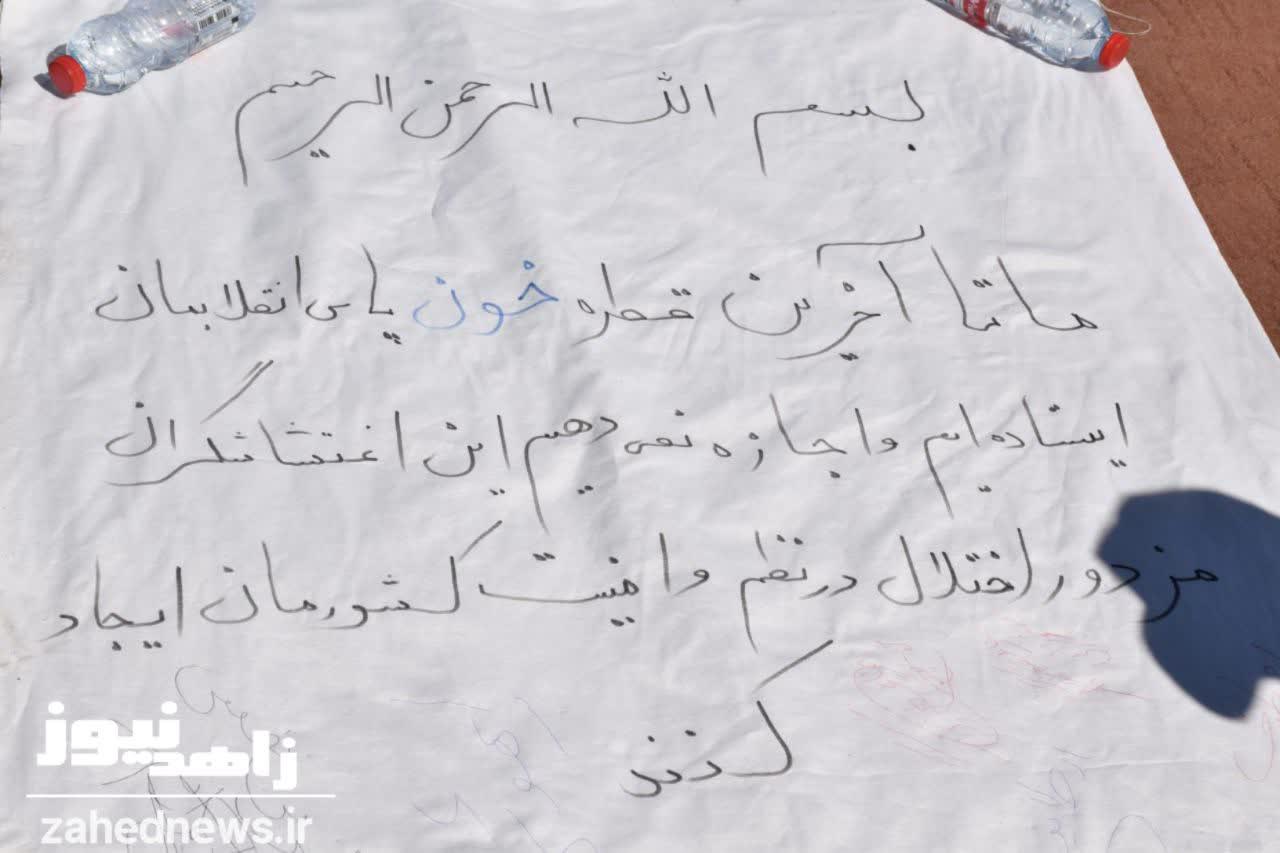 بسم الله الرحمن الرحیم
ما تا آخرین قطره خون پای انقلابمان
ایستاده ایم و اجازه نمی دهیم این اغتشاشگران
مزدور اختلال در نظم و امنیت کشورمان ایجاد
کنند
زاهدنیوز
zahednews.ir